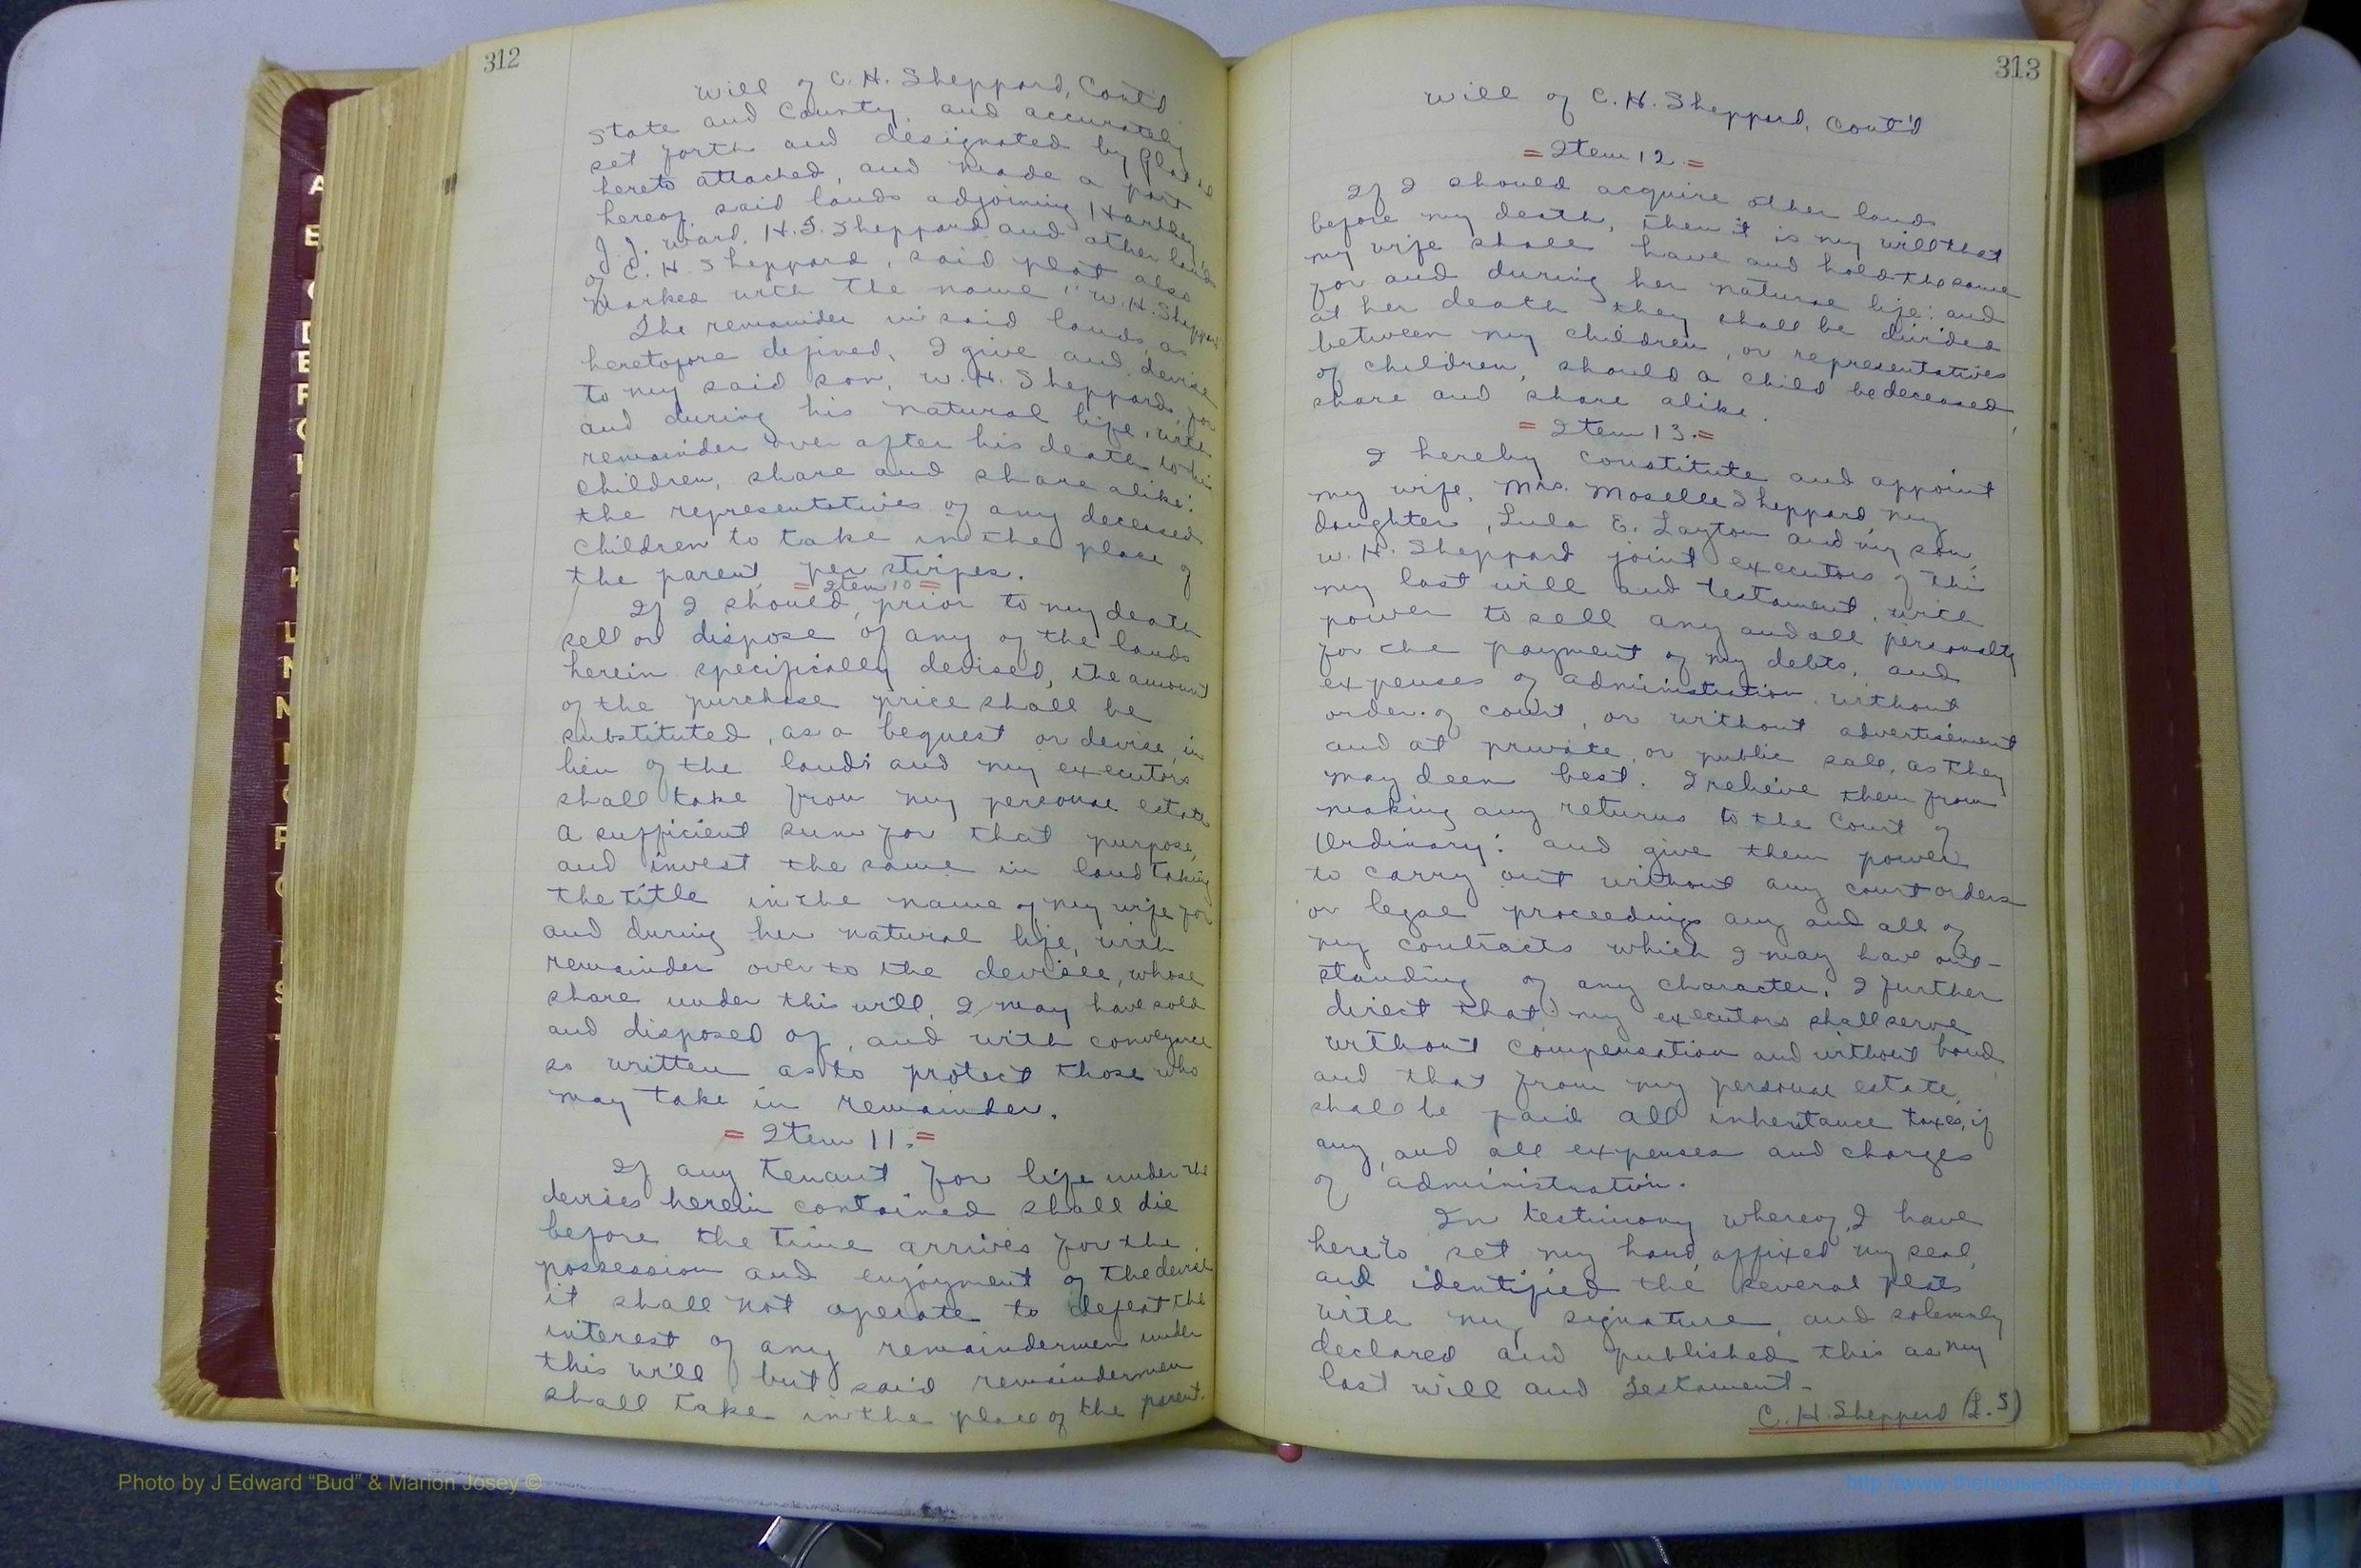 312
Will of C. H. Sheppard, Cont'd
State and County, and accurately
set forth and designated by
hereto attached, and made a part
hereof, said lands adjoining Hartley,
J. J. Ward, H. I. Sheppard and other lands
of C. H. Sheppard, said plat also
Marked with the name "W. H. Sheppard
The remainder in said lands, as
heretofore defined, I give and devise
to my said son, W. H. Sheppard, for
and during his natural life, with
remainder over after his death to his
children, share and share alike:
the representatives of any deceased
children to take in the place of
the parent, per stirpes.
= Item 10 =
If I should, prior to my death
sell or dispose of any of the lands
herein specifically devised, the amount
of the purchase price shall be
substituted, as a bequest or devise, in
lieu of the lands and my executors
shall take from my personal estate
a sufficient sum for that purpose,
and invest the same in land taking
the title in the name of my wife for
and during her natural life, with
remainder over to the devisee, whose
share under this will, I may have sold
and disposed of, and with conveyance
so written as to protect those who
may take in remainder.
= Item 11. =
If any tenant for life under the
devises herein contained shall die
before the time arrives for the
possession and enjoyment of the devise
it shall not operate to defeat the
interest of any remaindermen under
this will but said remaindermen
shall take in the place of the parent.
313
Will of C. H. Sheppard, Cont'd
= Item 12. =
If I should acquire other lands
before my death, then it is my will that
my wife shall have and hold the same
for and during her natural life: and
at her death they shall be divided
between my children, or representatives
of children, should a child be deceased,
share and share alike.
= Item 13. =
I hereby constitute and appoint
my wife, Mrs. Moselle Sheppard, my
daughter, Lula E. Layton and my son,
W. H. Sheppard joint executors of this
my last will and testament, with
power to sell any and all personalty
for the payment of my debts, and
expenses of administration without
order of court, or without advertisement
and at private, or public sale, as they
may deem best. I relieve them from
making any returns to the Court of
Ordinary: and give them power
to carry out without any court orders
or legal proceedings any and all of
my contracts which I may have out-
standing of any character. I further
direct that my executors shall serve
without compensation and without bond,
and that from my personal estate,
shall be paid all inheritance taxes, if
any, and all expenses and charges
of administration.
In testimony whereof, I have
hereto set my hand, affixed my seal,
and identified the several plats
with my signature, and solemnly
declared and published this as my
last will and testament-
C. H. Sheppard (L.S)
Photo by J Edward “Bud” & Marion Josey ©
http://www.thehouseofjossey-josey.org